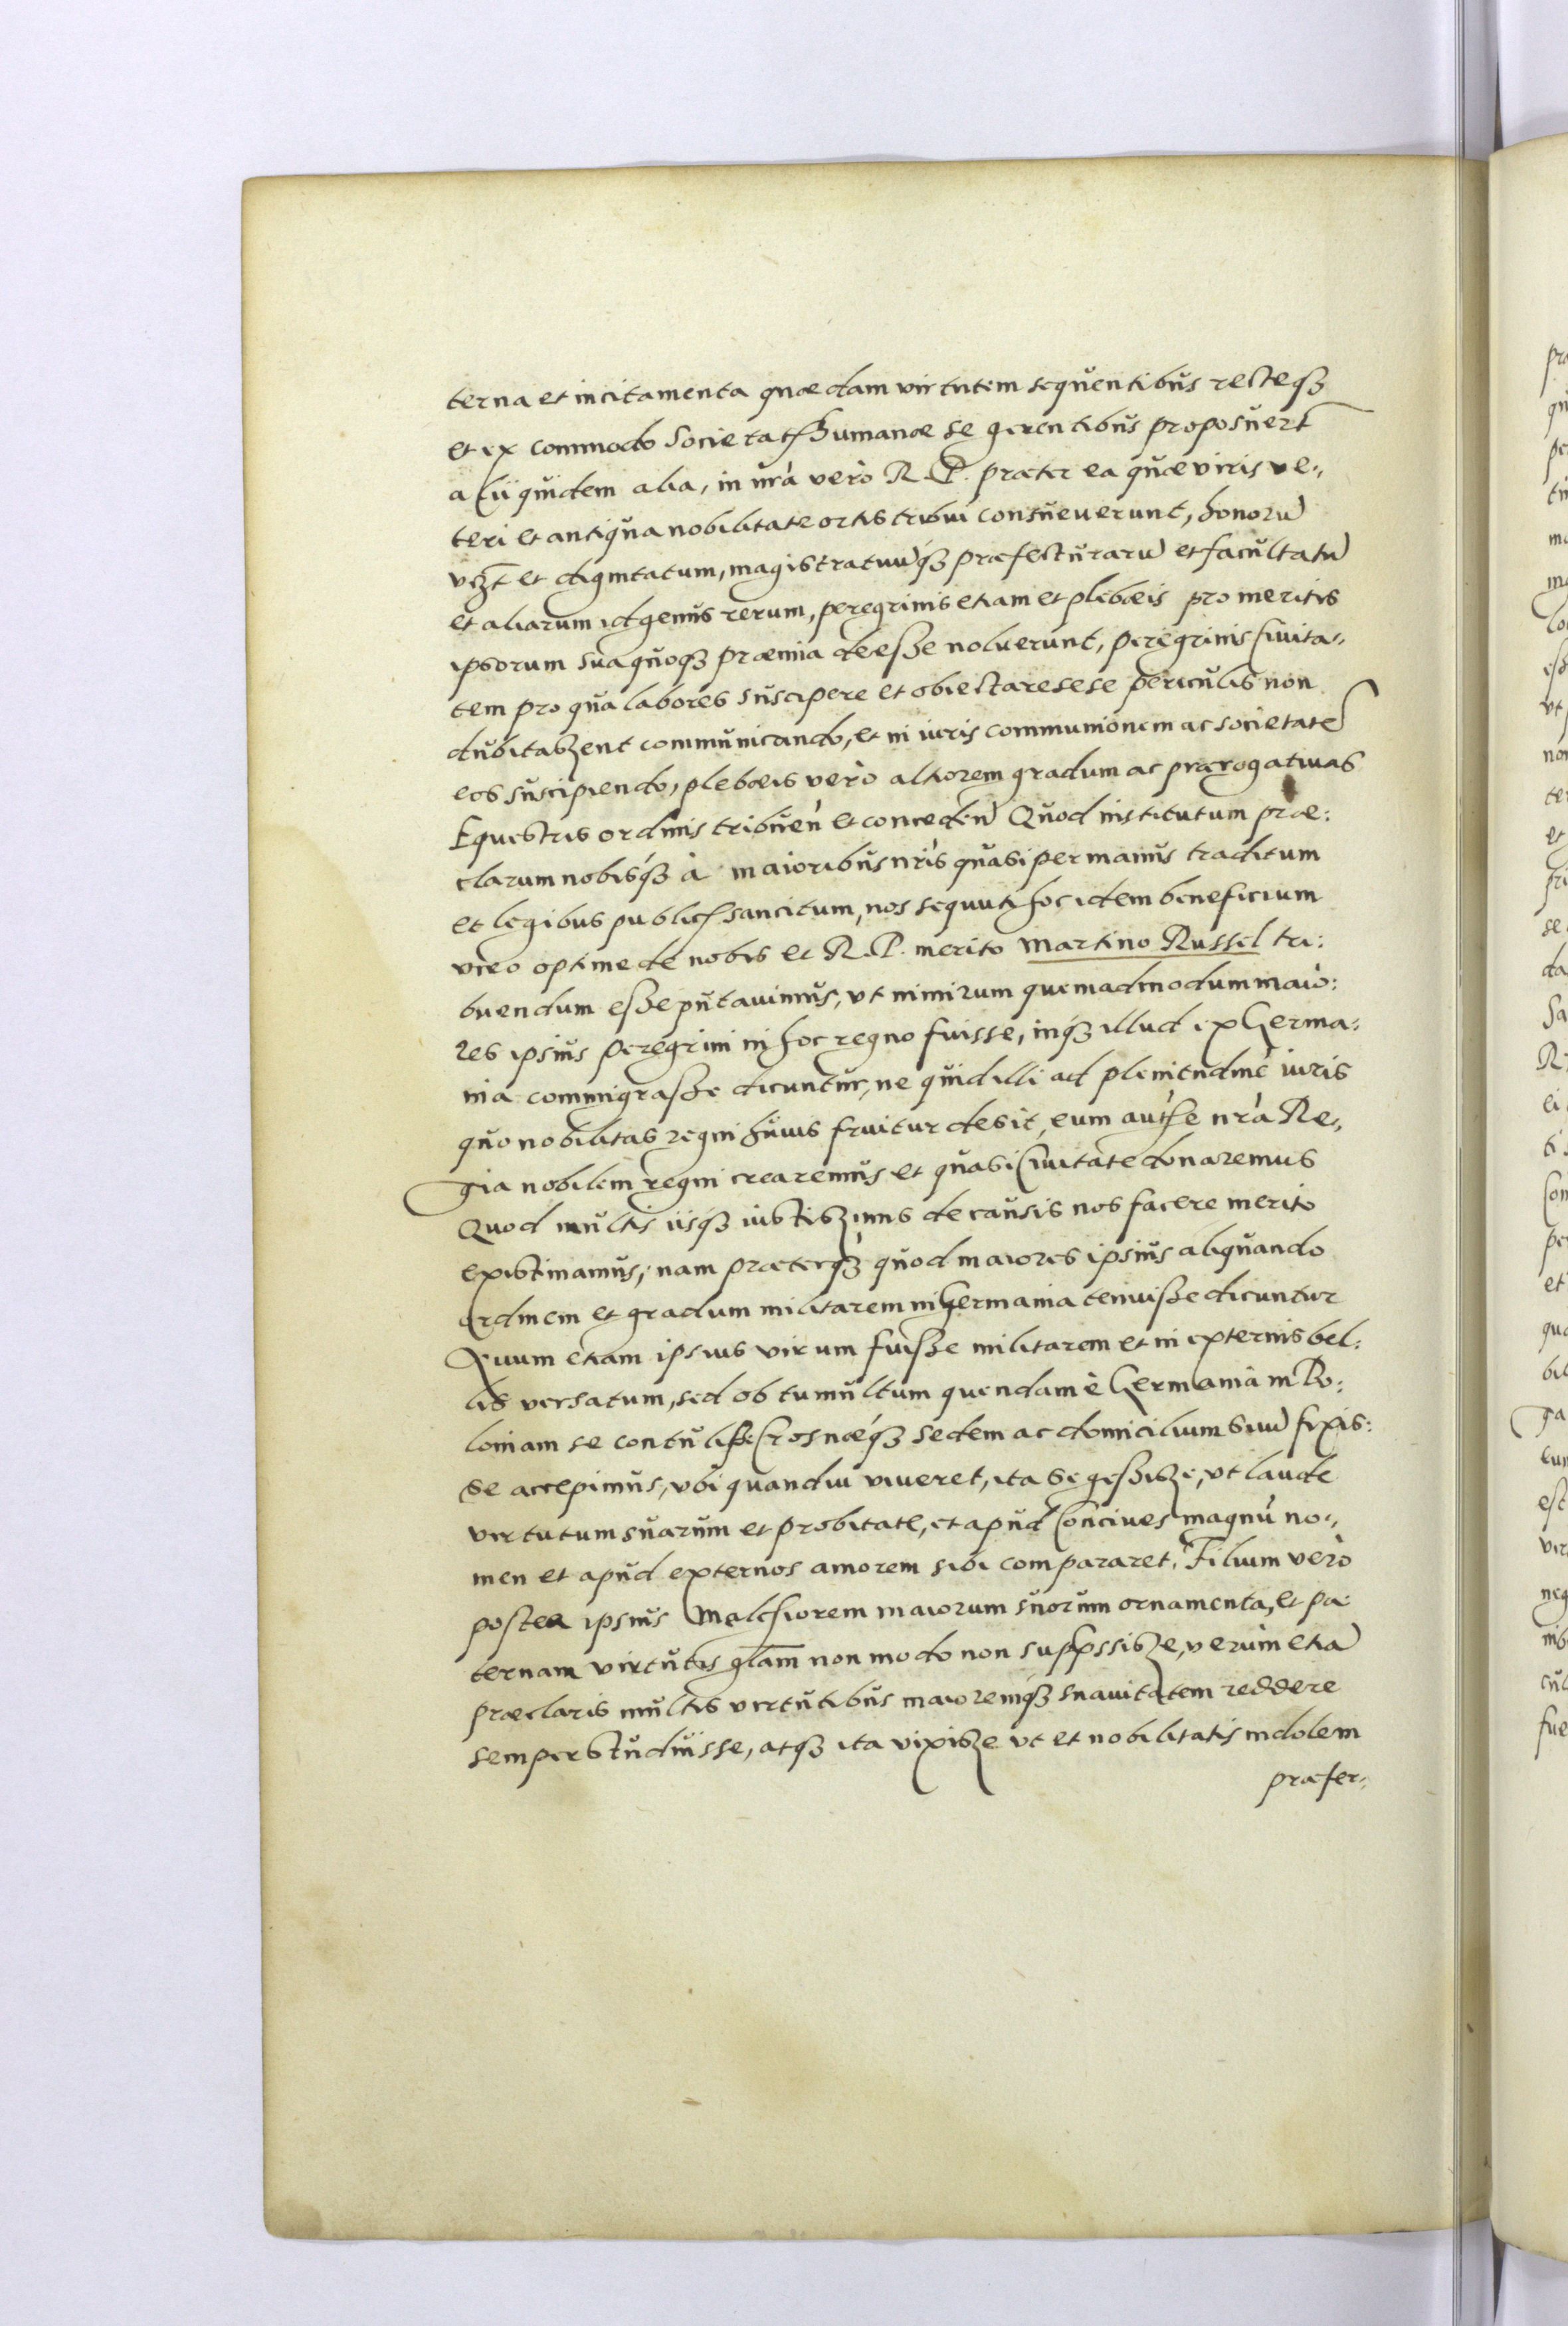 terna et incitamenta quædam virtutem sequentibus recteqꝫ
et ex commodo Societatꝭ humanæ se gerentibus proposuert
alii quidem alia, in nrà verò R. P. præter ea quæ viris ve-
teri et antiqua nobilitate ortis tribui consueuerunt, honorũ
vꝫt et dignitatum, magistratuũqꝫ præfecturarũ et facultatũ
et aliarum id genus rerum, peregrinis etiam et plebæis pro meritis
ipsorum sua quoqꝫ præmia deesse noluerunt, peregrinis Ciuita-
tem pro qua labores suscipere et obiectare sese periculis non
dubitassent communicando, et in iuris communionem ac societatẽ
eos suscipiendo, plebæis verò altiorem gradum ac prærogatiuas
Equestris ordinis tribuen̄ et conceden̄ Quod institutum præ:
clarum nobisqꝫ à maioribus nrìs quasi per manus traditum
et legibus publicꝭ sancitum, nos sequuti hoc idem beneficium
viro optime de nobis et R. P. merito Martino Russel tri:
buendum esse putauimus, vt nimirum quemadmodum maio:
res ipsius peregrini in hoc regno fuisse, inqꝫ illud ex Germa:
nia commigrasse dicuntur, ne quid illi ad plenitudinē iuris
quo nobilitas regni huius fruitur desit, eum autħe nrà Re-
gia nobilem regni crearemus et quasi Ciuitate donaremus
Quod multis iisqꝫ iustissimis de causis nos facere merito
existimamus, nam præterqꝫ quod maiores ipsius aliquando
ordinem et gradum militarem in Germania tenuisse dicuntur
Auum etiam ipsius virum fuisse militarem et in externis bel:
lis versatum, sed ob tumultum quendam è Germania in Po:
loniam se contulisse Crosnæqꝫ sedem ac domicilium suũ fixis:
se accepimus, vbi quandiu viueret, ita se gessisse, vt laude
virtutum suarum et probitate, et apud Conciues magnũ no-
men et apud externos amorem sibi compararet. Filium verò
postea ipsius Melchiorem maiorum suorum ornamenta, et pa
ternam virtutis glam̄ non modo non suppssisse, verùm etiã
præclaris multis virtutibus maioremqꝫ suauitatem reddere
semper studuisse, atqꝫ ita vixisse vt et nobilitatis indolem
præfer-